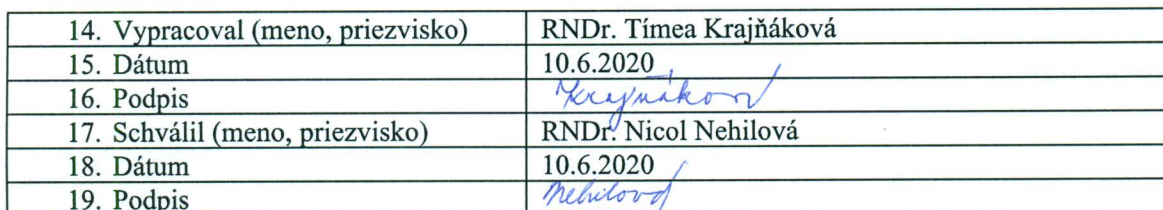 14. Vypracoval (meno, priezvisko) RNDr. Tímea Krajňáková
15. Dátum 10.6.2020
16. Podpis Krajňáková
17. Schválil (meno, priezvisko) RNDr. Nicol Nehilová
18. Dátum 10.6.2020
19. Podpis Nehilová